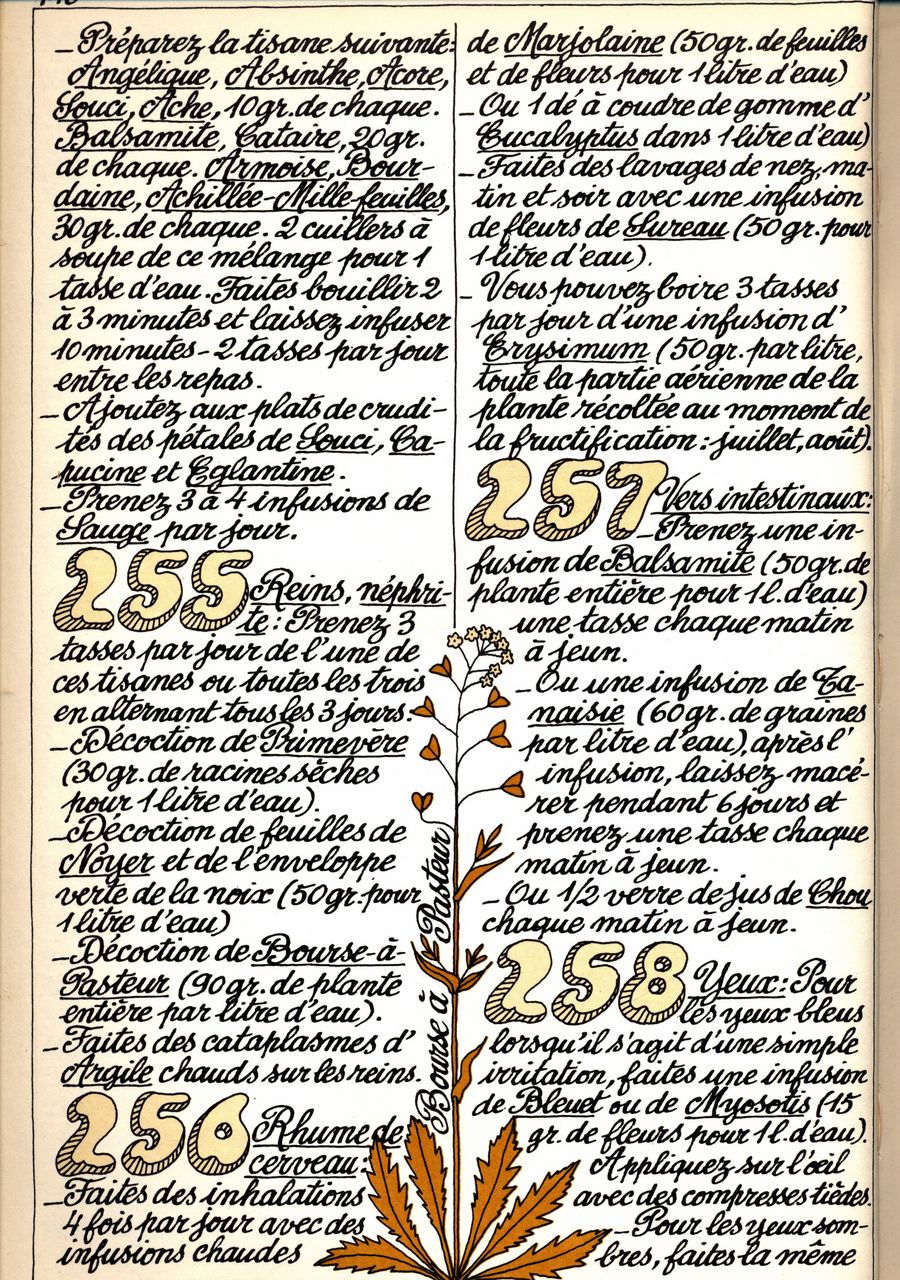 _ Préparez la tisane suivante:
Angélique, Absinthe, Acore,
Souci, Ache, 10 gr. de chaque.
Balsamite, Cataire, 20 gr.
de chaque. Armoise, Bour-
daine, Achillée-Mille-feuilles,
30 gr. de chaque. 2 cuillers à
soupe de ce mélange pour 1
tasse d'eau. Faites bouillir 2
à 3 minutes et laissez infuser
10 minutes - 2 tasses par jour
entre les repas.
_ Ajoutez aux plats de crudi-
tés des pétales de Souci, Ca-
pucine et Eglantine.
_ Prenez 3 à 4 infusions de
Sauge par jour.
255 Reins, néphri-
te: Prenez 3
tasses par jour de l'une de
ces tisanes ou toutes les trois
en alternant tous les 3 jours:
_ Décoction de Primevère
(30 gr. de racines sèches
pour 1 litre d'eau).
_ Décoction de feuilles de
Noyer et de l'enveloppe
verte de la noix (50 gr. pour
1 litre d'eau)
_ Décoction de Bourse-à-
Pasteur (90 gr. de plante
entière par litre d'eau).
_ Faites des cataplasmes d'
Argile chauds sur les reins.
256 Rhume de
cerveau:
_ Faites des inhalations
4 fois par jour avec des
infusions chaudes
Bourse à Pasteur
de Marjolaine (50 gr. de feuilles
et de fleurs pour 1 litre d'eau)
_ Ou 1 dé à coudre de gomme d'
Eucalyptus dans 1 litre d'eau)
_ Faites des lavages de nez, ma-
tin et soir avec une infusion
de fleurs de Sureau (50 gr. pour
1 litre d'eau).
_ Vous pouvez boire 3 tasses
par jour d'une infusion d'
Erysimum (50 gr. par litre,
toute la partie aérienne de la
plante récoltée au moment de
la fructification: juillet, août).
257 Vers intestinaux:
_ Prenez une in-
fusion de Balsamite (50 gr. de
plante entière pour 1 l. d'eau)
une tasse chaque matin
à jeun.
_ Ou une infusion de Ta-
naisie (60 gr. de graines
par litre d'eau), après l'
infusion, laissez macé-
rer pendant 6 jours et
prenez une tasse chaque
matin à jeun.
_ Ou 1/2 verre de jus de Chou
chaque matin à jeun.
258 Yeux: Pour
les yeux bleus
lorsqu'il s'agit d'une simple
irritation, faites une infusion
de Bleuet ou de Myosotis (15
gr. de fleurs pour 1 l. d'eau).
Appliquez sur l'œil
avec des compresses tièdes.
_ Pour les yeux som-
bres, faites la même